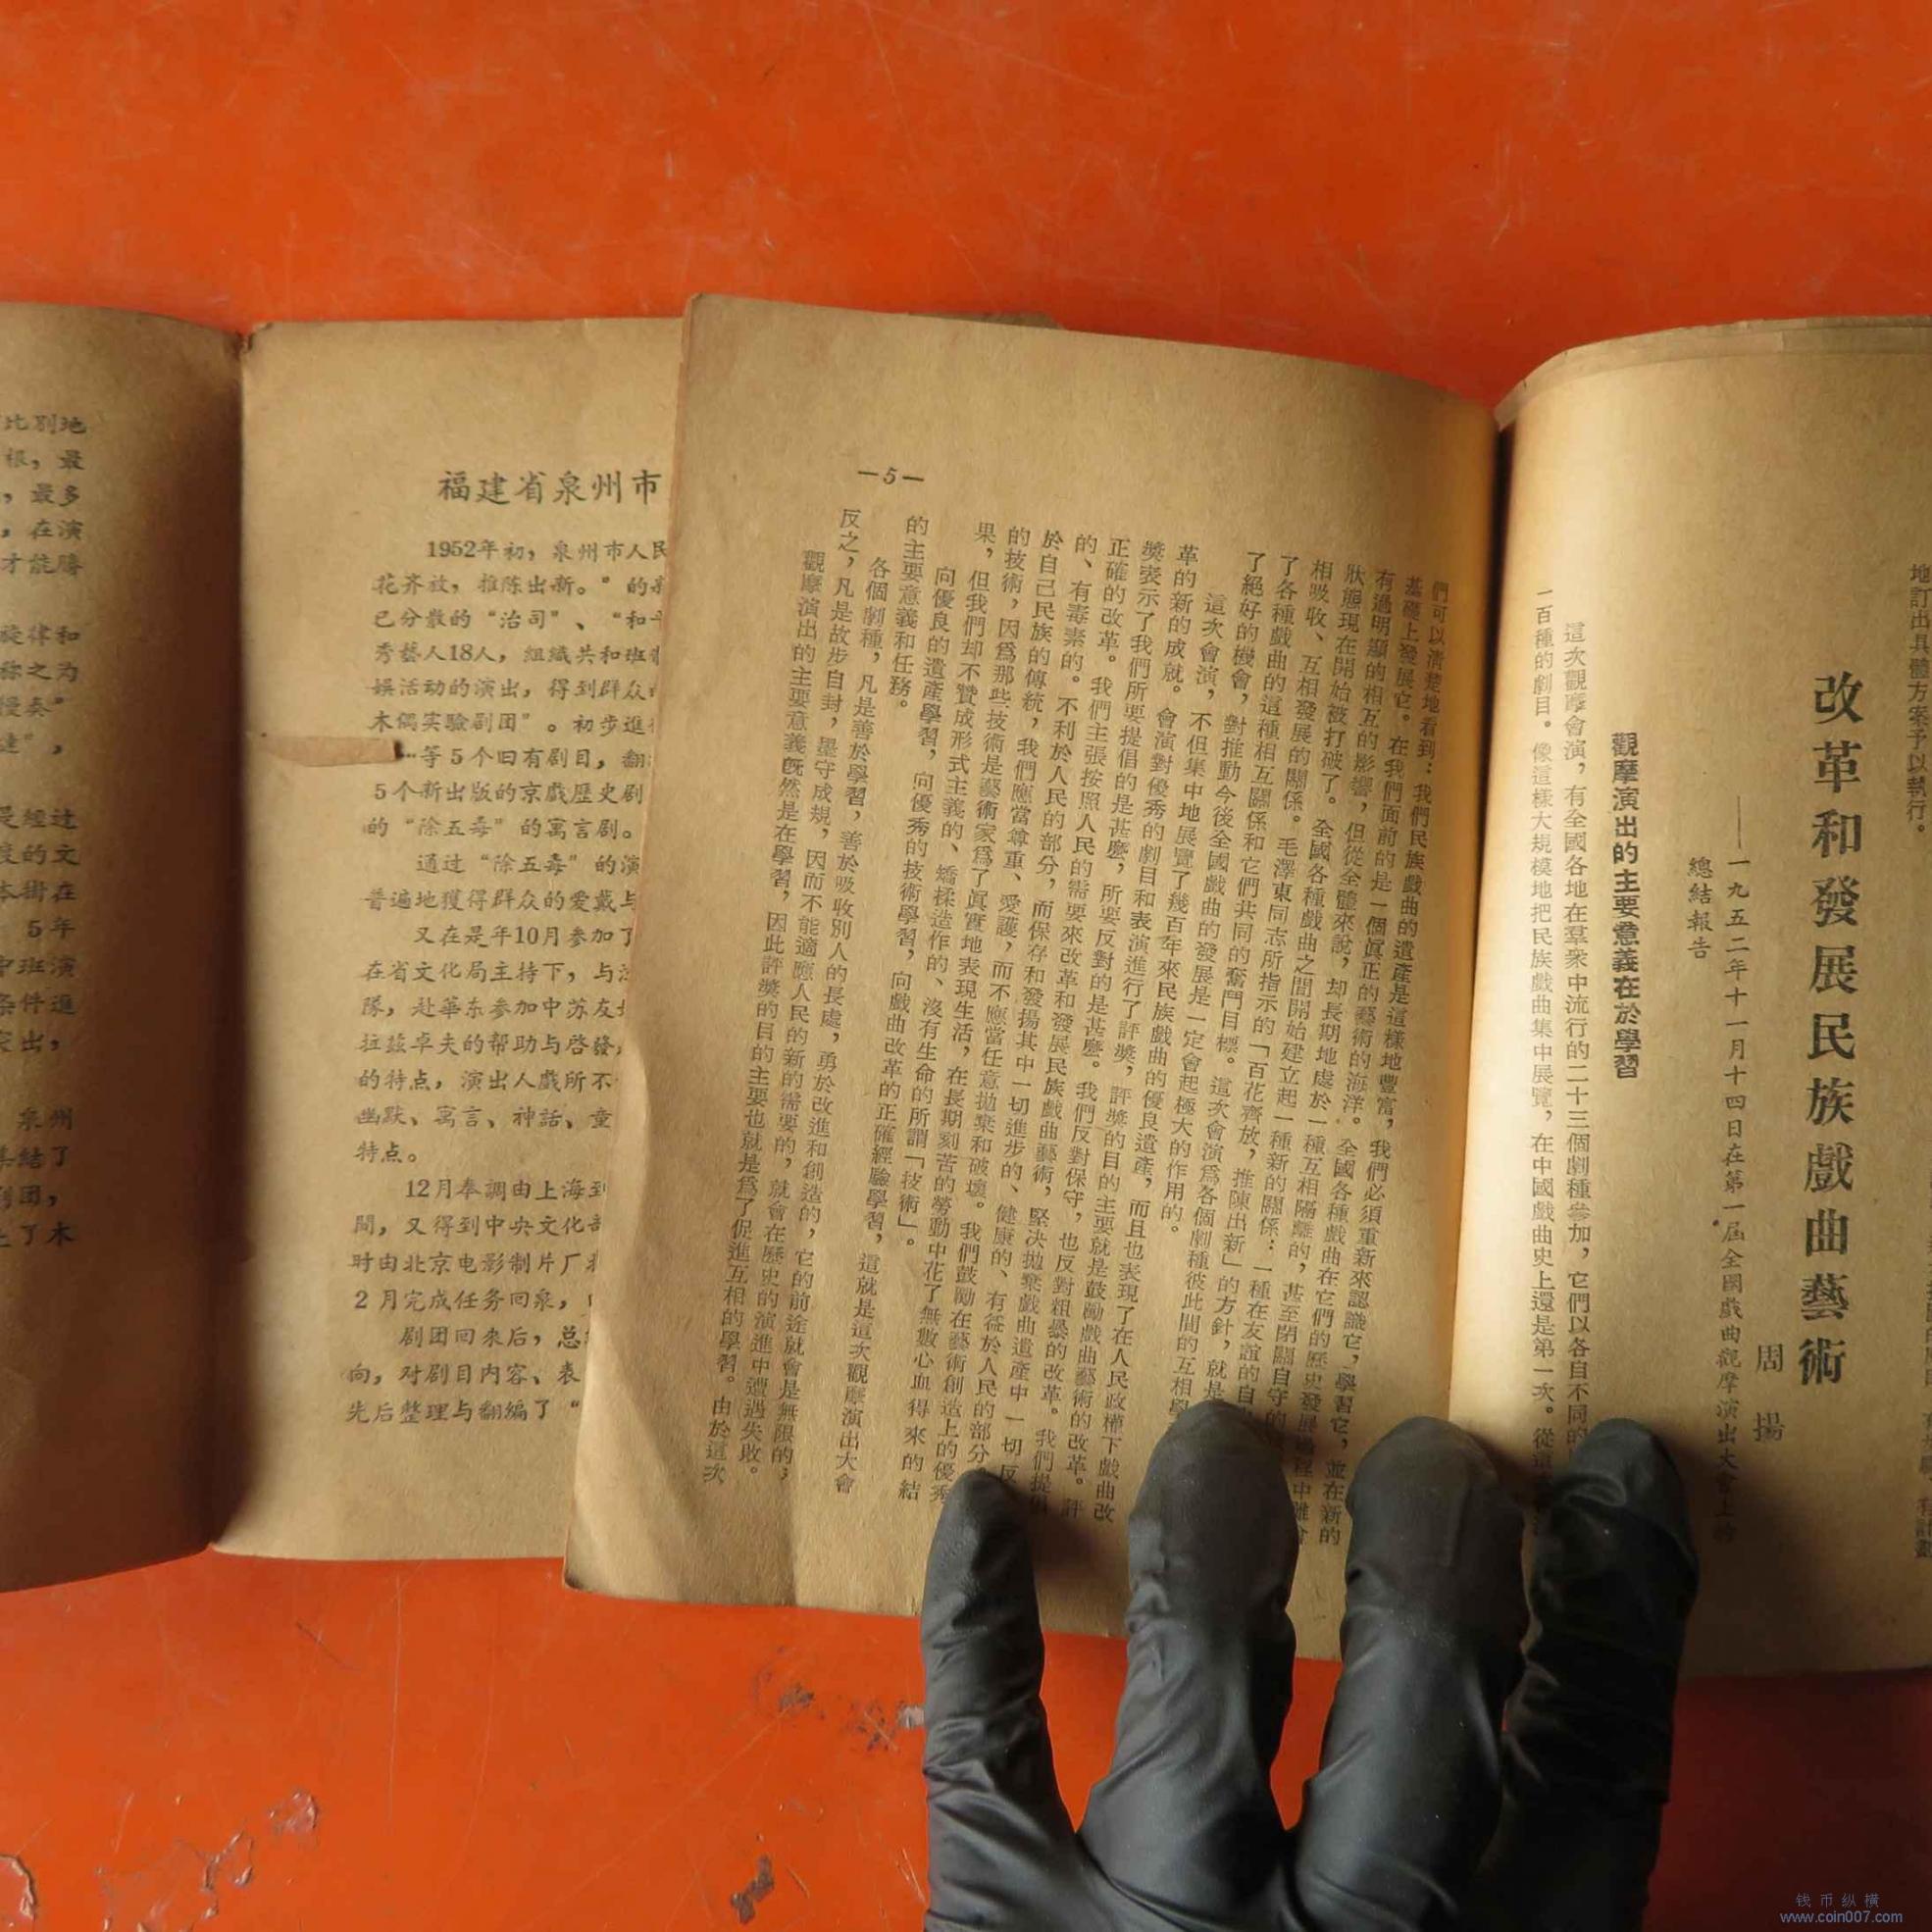 比別地
根，最
，最多
，在演
才能勝
旋律和
称之为
慢奏”
建”，
是經过
度的文
本街在
5年
中班演
条件進
突出，
泉州
集結了
剧团，
上了木
福建省泉州市
1952年初，泉州市人民
花齐放，推陈出新。”的
已分散的“治司”、“和平
秀藝人18人，組織共和班
娱活动的演出，得到群众
木偶实驗剧团”。初步進
…等5个旧有剧目，翻
5个新出版的京戲歷史剧
的“除五毒”的寓言剧。
通过“除五毒”的演
普遍地獲得群众的爱戴与
又在是年10月参加了
在省文化局主持下，与
隊，赴華东参加中苏友
拉茲卓夫的帮助与启發，
的特点，演出人戲所不
幽默、寓言、神話、童
特点。
12月奉調由上海到
間，又得到中央文化部
时由北京电影制片厂
2月完成任务回泉，
剧团回来后，总
向，对剧目内容、表
先后整理与翻編了“
地訂出具體方案予以執行。
改革和發展民族戲曲藝術
周揚
——一九五二年十一月十四日在第一屆全國戲曲觀摩演出大會上的
總結報告
觀摩演出的主要意義在於學習
這次觀摩會演，有全國各地在羣衆中流行的二十三個劇種參加，它們以各自不同的
一百種的劇目。像這樣大規模地把民族戲曲集中展覽，在中國戲曲史上還是第一次。從這
—5—
們可以清楚地看到：我們民族戲曲的遺產是這樣地豐富，我們必須重新來認識它，學習它，並在新的
基礎上發展它。在我們面前的是一個真正的藝術的海洋。全國各種戲曲在它們的歷史發展過程中雖會
有過明顯的相互的影響，但從全體來說，却長期地處於一種互相隔離的，甚至閉關自守的
狀態現在開始被打破了。全國各種戲曲之間開始建立起一種新的關係：一種在友誼的自
相吸收、互相發展的關係。毛澤東同志所指示的「百花齊放，推陳出新」的方針，就是
了各種戲曲的這種相互關係和它們共同的奮鬥目標。這次會演爲各個劇種彼此間的互相學
了絕好的機會，對推動今後全國戲曲的發展是一定會起極大的作用的。
這次會演，不但集中地展覽了幾百年來民族戲曲的優良遺產，而且也表現了在人民政權下戲曲改
革的新的成就。會演對優秀的劇目和表演進行了評獎，評獎的目的主要就是鼓勵戲曲藝術的改革。評
獎表示了我們所要提倡的是甚麽，所要反對的是甚麽。我們反對保守，也反對粗暴的改革。我們提倡
正確的改革。我們主張按照人民的需要來改革和發展民族戲曲藝術，堅决拋棄戲曲遺產中一切反
的、有毒素的。不利於人民的部分，而保存和發揚其中一切進步的、健康的、有益於人民的部分
於自己民族的傳統，我們應當尊重、愛護，而不應當任意拋棄和破壞。我們鼓勵在藝術創造上的優秀
的技術，因爲那些技術是藝術家爲了真實地表現生活，在長期刻苦的勞動中花了無數心血得來的結
果，但我們却不贊成形式主義的、矯揉造作的、沒有生命的所謂「技術」。
向優良的遺產學習，向優秀的技術學習，向戲曲改革的正確經驗學習，這就是這次觀摩演出大會
的主要意義和任務。
各個劇種，凡是善於學習，善於吸收別人的長處，勇於改進和創造的，它的前途就會是無限的；
反之，凡是故步自封，墨守成規，因而不能適應人民的新的需要的，就會在歷史的演進中遭過失敗。
觀摩演出的主要意義旣然是在學習，因此評獎的目的主要也就是爲了促進互相的學習。由於這次
钱币纵横
www.coin007.com